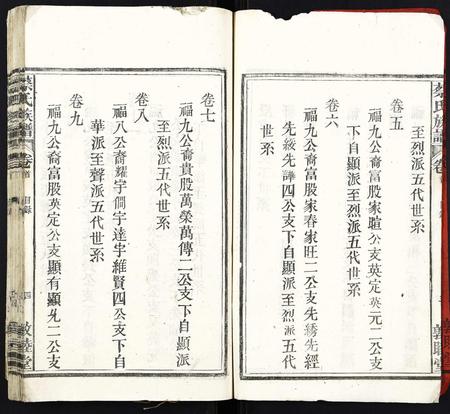 蔡氏族譜
卷
至烈派五代世系
卷五
一福九公裔富股家暄公支英定英元二公支
下自顯派至烈派五代世系
卷六
一福九公裔富股家春家旺二公支先綉先經
先紋先譁四公支下自顯派至烈派五代
世系
敦睦堂
卷七
一福九公裔貴股萬榮萬傳二公支下自顯派
至烈派五代世系
卷八
一福八公裔耀宇僴宇達宇維賢四公支下自
華派至聲派五代世系
卷九
一福九公裔富股英定公支顯有顯允二公支
蔡氏族譜
卷首
目錄
四
敦睦堂